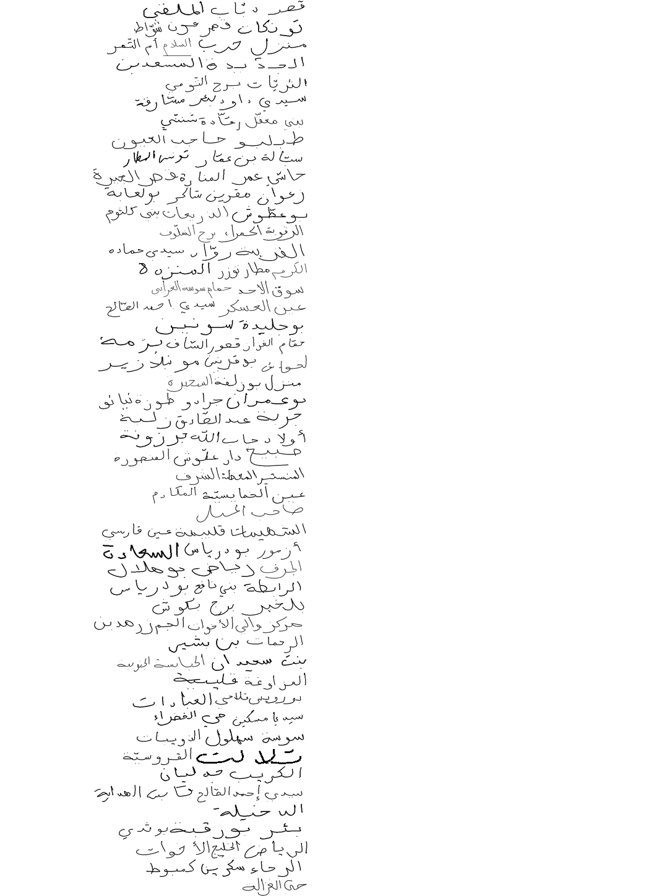 قصر ذياب الملقى
تونكات قصر عون شواط
منزل حرب السلام أم الثمر
الجديدة المسعدين
الثريات برج التومي
سيدي داود بئر مشارقة
سي معقل رمادة شنني
طبلبو حاجب العيون
ستالة بن عمار تونس المطار
حاشي عمر المنارة قصر الجيرة
زغوان مقرين شاكر بولعابة
بوعطوش الذريعات بني كلثوم
الزنوبة الحمراء برج العلوف
القرية روار سيدي حمادة
الكريم مطار توزر المنزه 6
سوق الاحد حمام سوسة الغرابي
عين العسكر سيدي احمد الصالح
بوجليدة سونين
مقام الفوار قعور الساف بزمة
بوقريس مونبلازير
منزل بوزلفة السخيرة
بوعمران جرادو طوزة نيانو
جربة عبد القادر زلبة
أولاد جاب الله جرزونة
خبيج دار علوش المعمورة
المنستير المعطة الشرف
عين الحمايسية المكارم
صاحب الجبل
الشهيبات قليبية عين فارسي
أزمور بودرياس السعادة
الجرف رياض بوهلال
الرابطة بني نافع بودرياس
بلخير برج بكوش
مركز والي الأخوات الجم زرمدين
الرحمات بن بشير
بنت سعيدان الحبابسة
المراوغة قليبية
تلامي العبادات
سيديا مسكين حي الخضراء
سوسة سهلول الذويبات
تلالت الفروسية
الكريب مدليان
سيدي أحمد الصالح قابس الهداية
الدخيلة
بئر بورقبة بوثدي
الرياض الخليج الأخوات
الرخاء سكرين كسوط
حي الغزالة